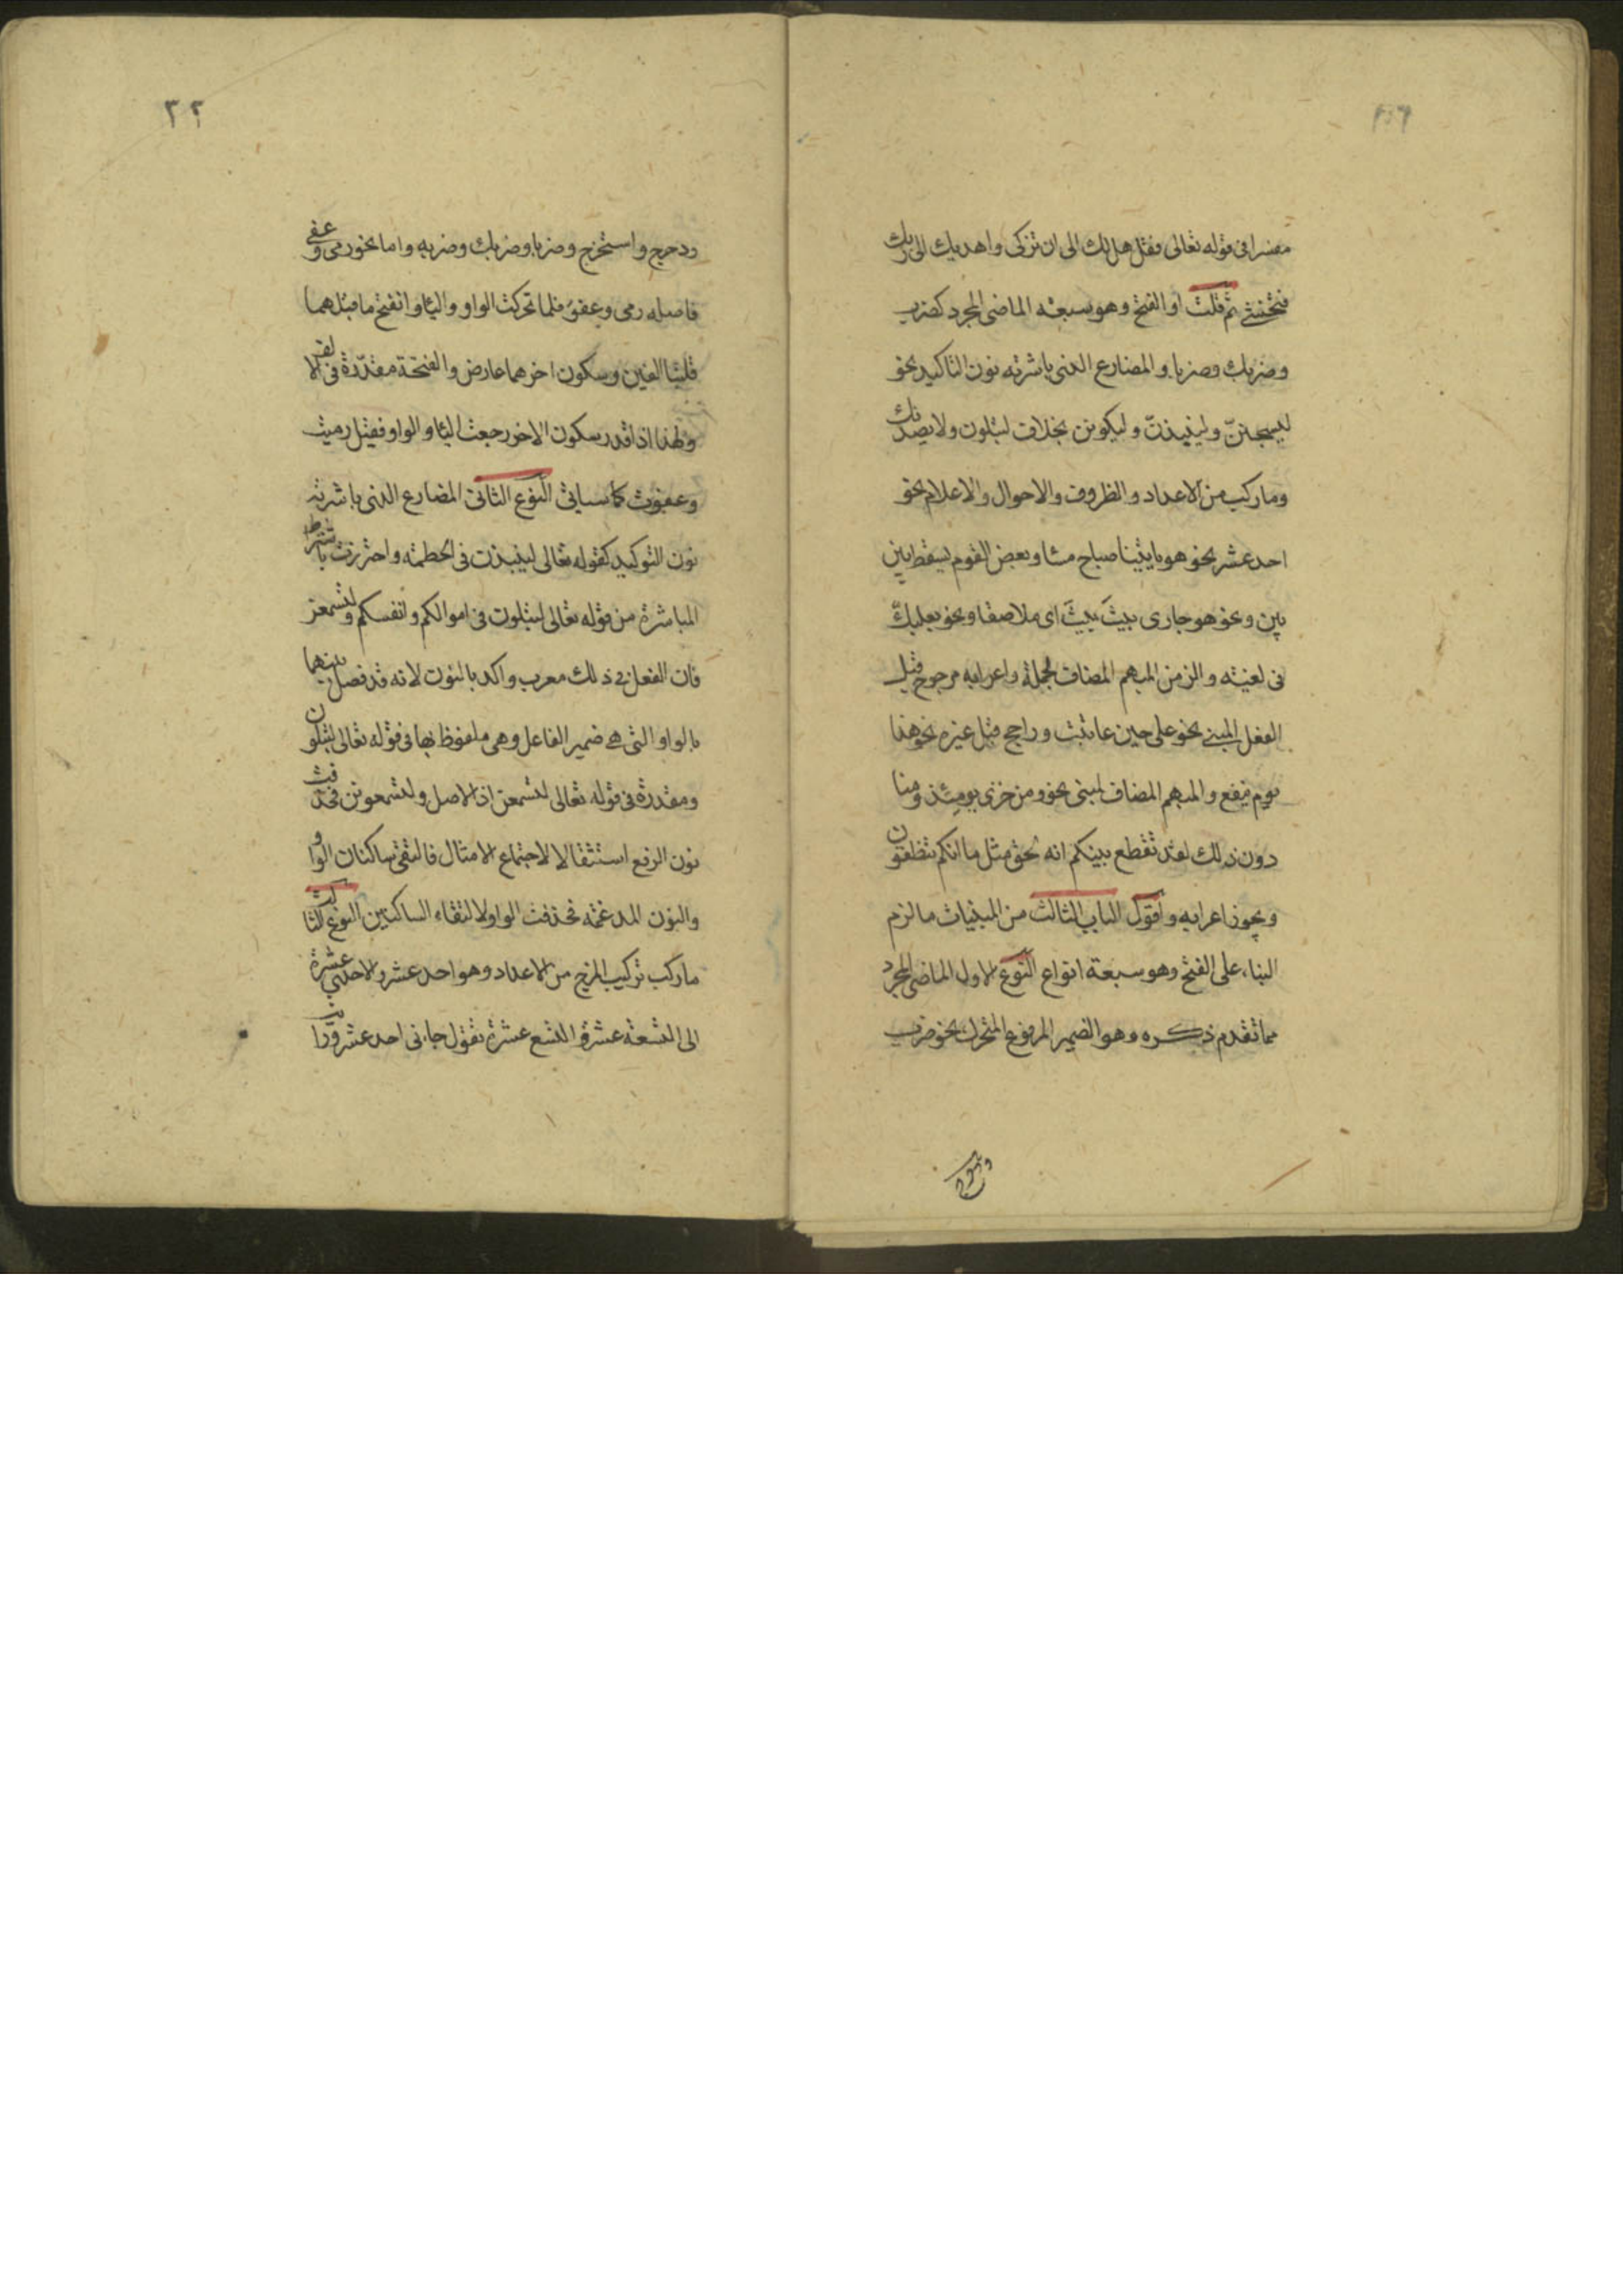 مفسرا فى قوله تعالى فقل هل لك الى ان تزكى واهديك الى ربك
فتخشى ثم قلت او الفتح وهو سبعة الماضى المجرد كضرب
وضربك وضربا والمضارع الذى باشرته نون التاكيد نحو
ليسجنن ولينبذن وليكونن بخلاف لتبلون ولا يصدنك
وما ركب من الاعداد والظروف والاحوال والاعلام نحو
احد عشر نحو هو ياتينا صباح مسا وبعض القوم يسقط بين
بين ونحو هو جارى بيت بيت اى ملاصقا ونحو بعلبك
فى لغيته والزمن المبهم المضاف لجملة واعرابه مرجوح قبل
الفعل المبنى نحو على حين عاتبت وراجح قبل غيره نحو هذا
يوم ينفع والمبهم المضاف لمبنى نحو ومن خزى يومئذ ومنا
دون ذلك لقد تقطع بينكم انه لحق مثل ما انكم تنطقون
ويجوز اعرابه واقول الباب الثالث من المبنيات ما لزم
البناء على الفتح وهو سبعة انواع النوع الاول الماضى المجرد
مما تقدم ذكره وهو الضمير المرفوع المتحرك نحو ضرب
ودحرج
٢٢
ودحرج واستخرج وضربا وضربك وضربه واما نحو رمى وعفى
فاصله رمى وعفو فلما تحركت الواو واليا وانفتح ما قبلهما
قلبتا الفين وسكون اخرهما عارض والفتحة مقدرة فى الالف
ولهذا اذا قدر سكون الاخر رجعت اليا والواو فقيل رميت
وعفوت كما سياتى النوع الثانى المضارع الذى باشرته
نون التوكيد كقوله تعالى لينبذن فى الحطمة واحترزت باشتراط
المباشرة من قوله تعالى لتبلون فى اموالكم وانفسكم ولتسمعن
فان الفعل فى ذلك معرب واكد بالنون لانه قد فصل بينهما
بالواو التى هى ضمير الفاعل وهى ملفوظ بها فى قوله تعالى لتبلون
ومقدرة فى قوله تعالى لتسمعن اذ الاصل ولتسمعونن فحذفت
نون الرفع استثقالا لاجتماع الامثال فالتقى ساكنان الواو
والنون المدغمة فحذفت الواو لالتقاء الساكنين النوع الثالث
ما ركب تركيب المزج من الاعداد وهو احد عشر والاحدى عشرة
الى التسعة عشر والتسع عشرة تقول جاءنى احد عشر